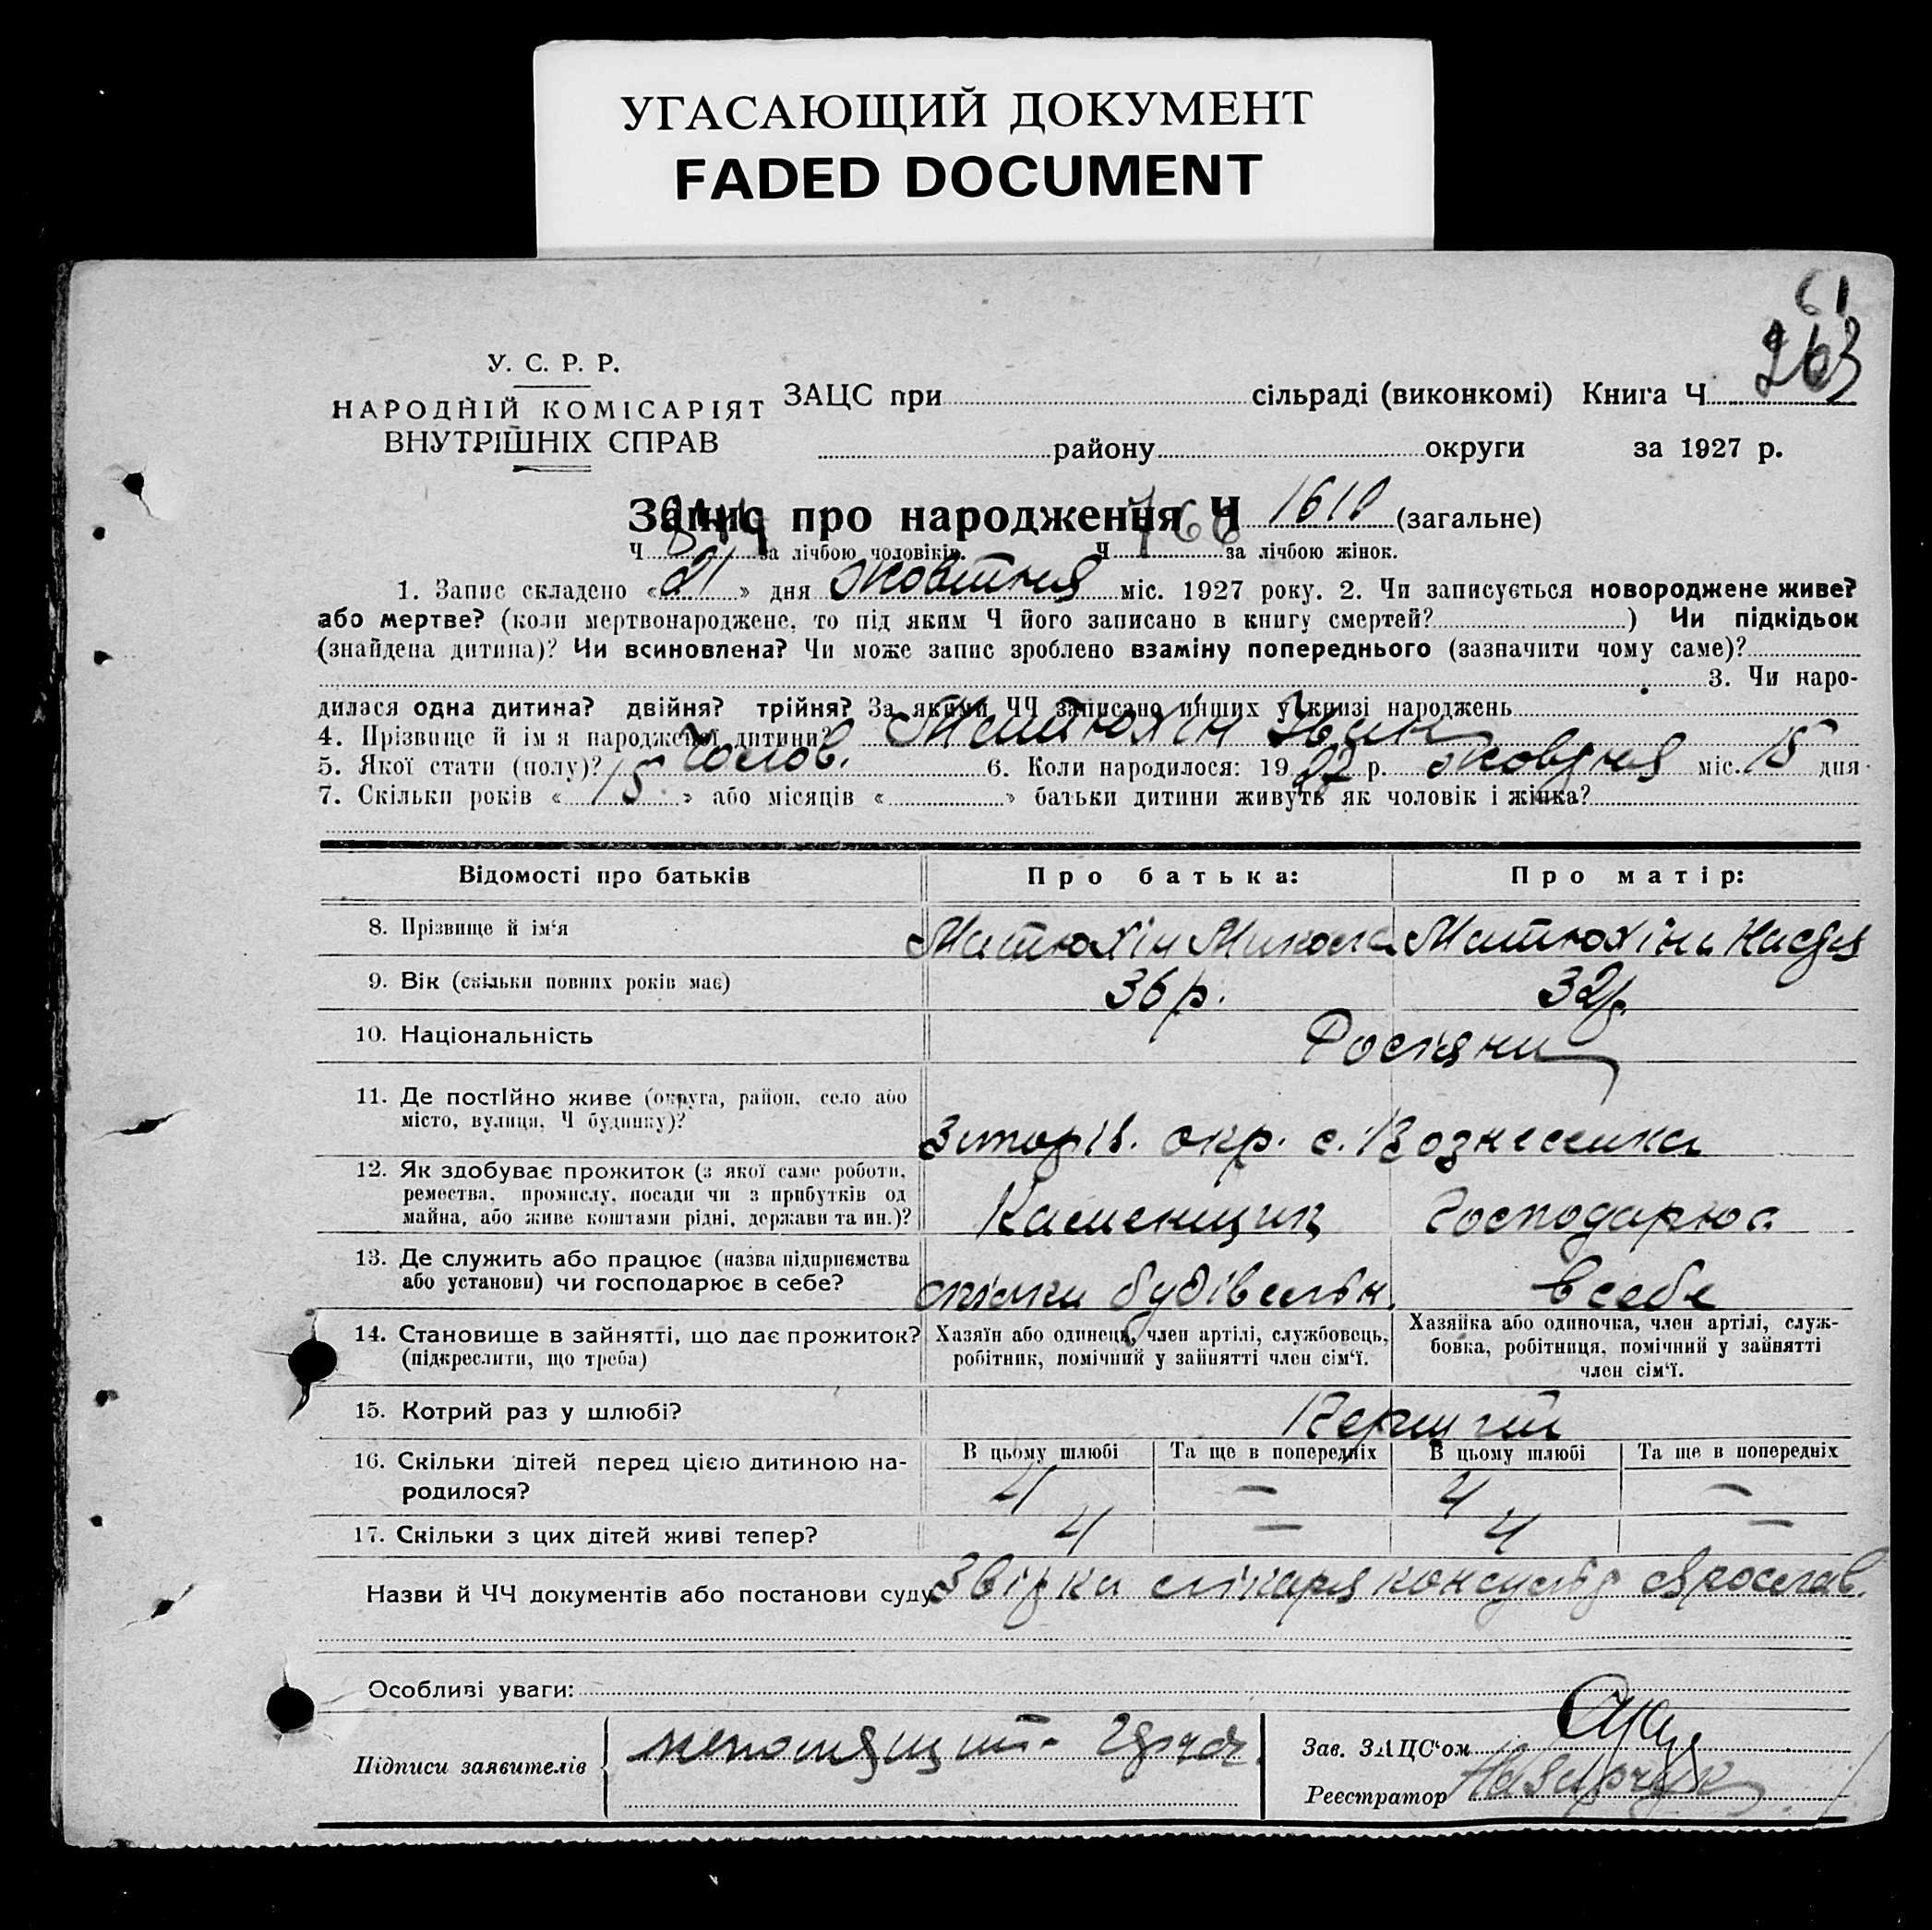 УГАСАЮЩИЙ ДОКУМЕНТ
FADED DOCUMENT
61
263
У. С. Р. Р.
НАРОДНІЙ КОМІСАРІЯТ
ВНУТРІШНІХ СПРАВ
ЗАЦС при сільраді (виконкомі) Книга Ч
району округи за 1927 р.
Запис про народження Ч 1610 (загальне)
Ч 844 за лічбою чоловіків. Ч 766 за лічбою жінок.
1. Запис складено «21» дня Жовтня міс. 1927 року. 2. Чи записується новороджене живе?
або мертве? (коли мертвонароджене, то під яким Ч його записано в книгу смертей? ) Чи підкідьок
(знайдена дитина)? Чи всиновлена? Чи може запис зроблено взаміну попереднього (зазначити чому саме)?
3. Чи наро-
дилася одна дитина? двійня? трійня? За якими ЧЧ записано инших у книзі народжень
4. Прізвище й ім'я народженої дитини? Матюхін Іван
5. Якої стати (полу)? Чолов. 6. Коли народилося: 1927 р. Жовтня міс. 15 дня
7. Скільки років «15» або місяців « » батьки дитини живуть як чоловік і жінка?
Відомості про батьків Про батька: Про матір:
8. Прізвище й ім'я Матюхін Микола Матюхіна Надія
9. Вік (скільки повних років має) 36 р. 32 р.
10. Національність Росіяни
11. Де постійно живе (округа, район, село або
місто, вулиця, Ч будинку)? Запоріз. окр. с. Вознесенка
12. Як здобуває прожиток (з якої саме роботи,
ремества, промислу, посади чи з прибутків од
майна, або живе коштами рідні, держави та ин.)? Каменщик Господарює
13. Де служить або працює (назва підприємства
або установи) чи господарює в себе? спілки будівельн. в себе
14. Становище в зайнятті, що дає прожиток?
(підкреслити, що треба)
Хазяїн або одинець, член артілі, службовець,
робітник, помічний у зайнятті член сім'ї.
Хазяйка або одиночка, член артілі, служ-
бовка, робітниця, помічний у зайнятті
член сім'ї.
15. Котрий раз у шлюбі? Перший
В цьому шлюбі Та ще в попередніх В цьому шлюбі Та ще в попередніх
16. Скільки дітей перед цією дитиною на-
родилося? 4 — 4 —
17. Скільки з цих дітей живі тепер? 4 — 4 —
Назви й ЧЧ документів або постанови суду лікаря консульт
Особливі уваги:
Підписи заявителів
Зав. ЗАЦС'ом
Реєстратор